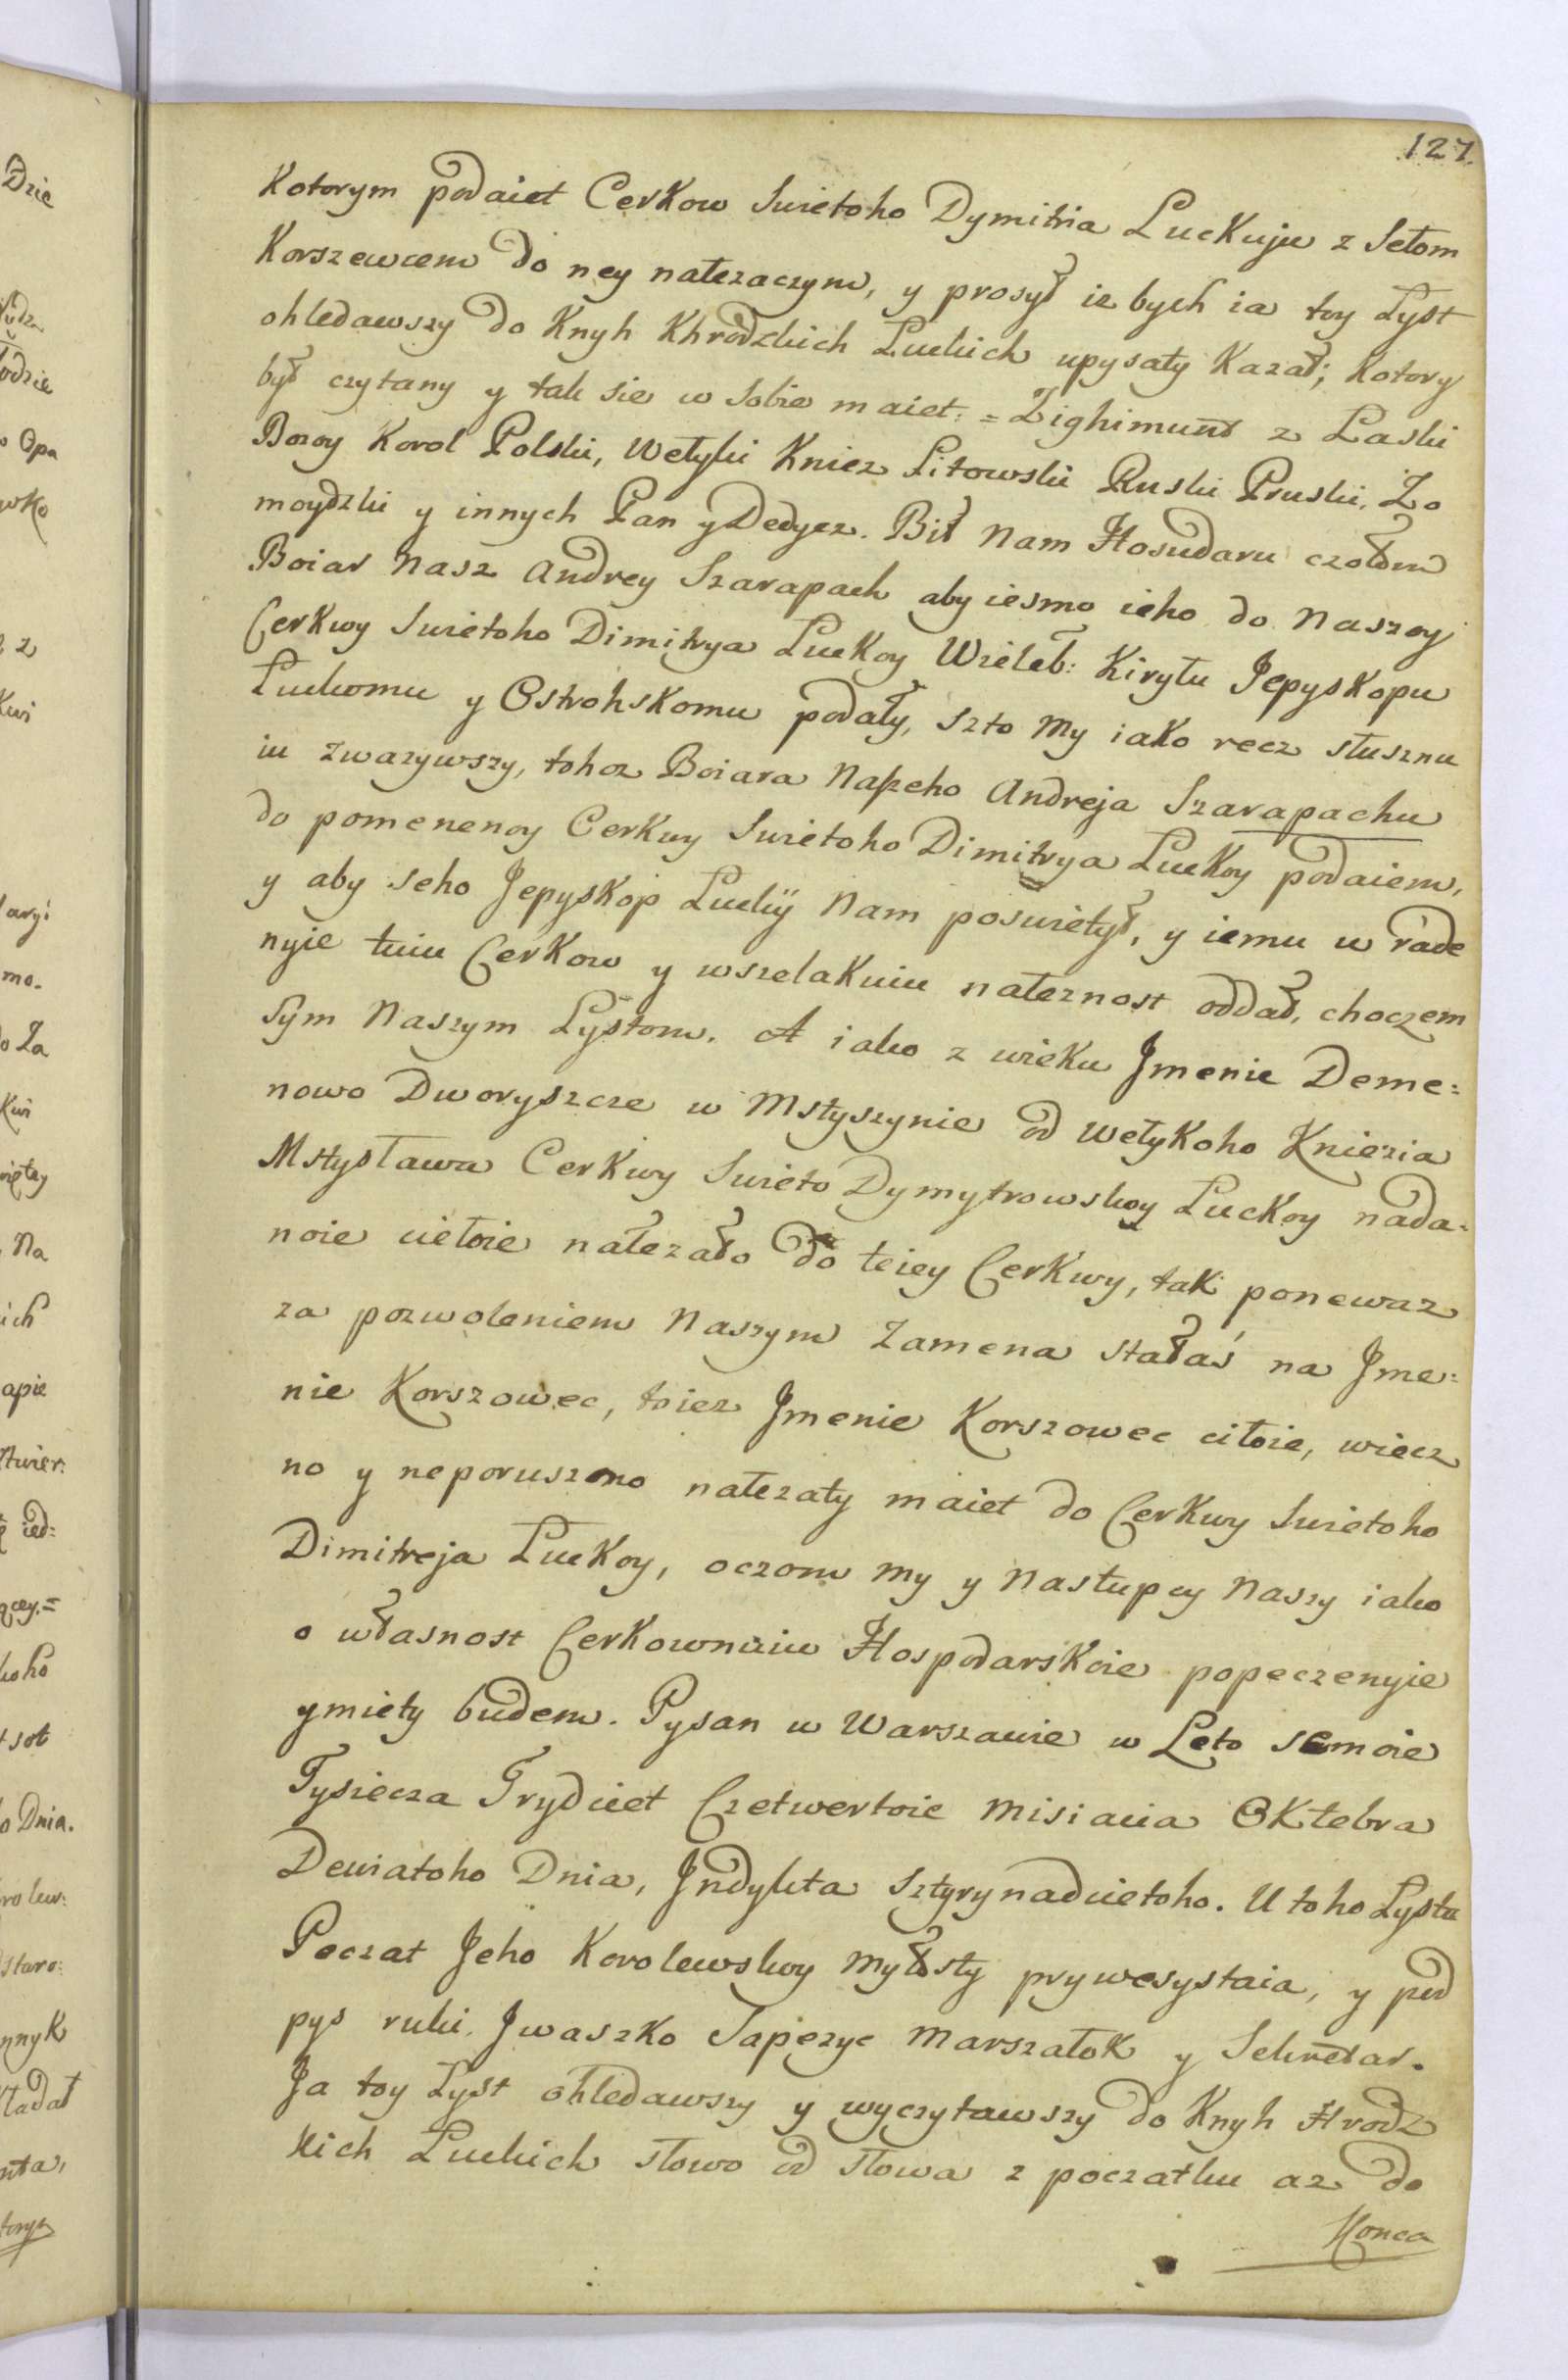 127.
Kotorym podaiet Cerkow Swietoho Dymitria Luckuju z Sełom
Korszewcem do ney nałezaczym, y prosył iz bych ia toy Łyst
ohledawszy do Knyh Khrodzkich Łuckich upysaty Kazał; Kotory
był czytany y tak sie w sobie maiet: = Zighimunt z Łaski
Bozoy Korol Polski, Wełyki Kniez Litowski Ruski Pruski, Zo
moydzki y innych Pan y Dedycz. Bił Nam Hosudaru czołom
Boiar Nasz Andrey Szarapach aby iesmo ieho do Naszoy
Cerkwy Swietoho Dimitrya Łuckoy Wieleb: Kiryłu Jepyskopu
Łuckomu y Ostrohskomu podały, szto my iako recz słusznu
iu zwazywszy, tohoz Boiara Naszeho Andreja Szarapachu
do pomenenoy Cerkwy Swietoho Dimitrya Łuckoy podaiem,
y aby seho Jepyskop Łuckij Nam poswietył, y iemu w rade
nyie tuiu Cerkow y wszelakuiu nałeznost oddał, choczem
sym Naszym Łystom. A iako z wieku Jmenie Deme:
nowo Dworyszcze w Mstyszynie od Wełykoho Kniezia
Mstysława Cerkwy Swieto Dymytrowskoy Łuckoy nada:
noie ciełoie nałezało do teiey Cerkwy, tak ponewaz
za pozwoleniem Naszym Zamena stałaś na Jme:
nie Korszowec, toiez Jmenie Korszowec ciłoie, wiecz
no y neporuszono nałezaty maiet do Cerkwy Swietoho
Dimitreja Łuckoy, oczom my y Nastupcy Naszy iako
o własnost Cerkownuiu Hospodarskoie popeczenyie
ymiety budem. Pysan w Warszawie w Leto semoie
Tysiecza Trydciet Czetwertoie misiacia Oktebra
Dewiatoho Dnia, Jndykta sztyrynadcietoho. U toho Łystu
Peczat Jeho Korolewskoy Myłosty prywesystaia, y pod
pys ruki. Jwaszko Sapezyc Marszałok y Sekretar.
Ja toy Łyst ohledawszy y wyczytawszy do Knyh Hrodz
kich Łuckich słowo od słowa z poczatku az do
Konca